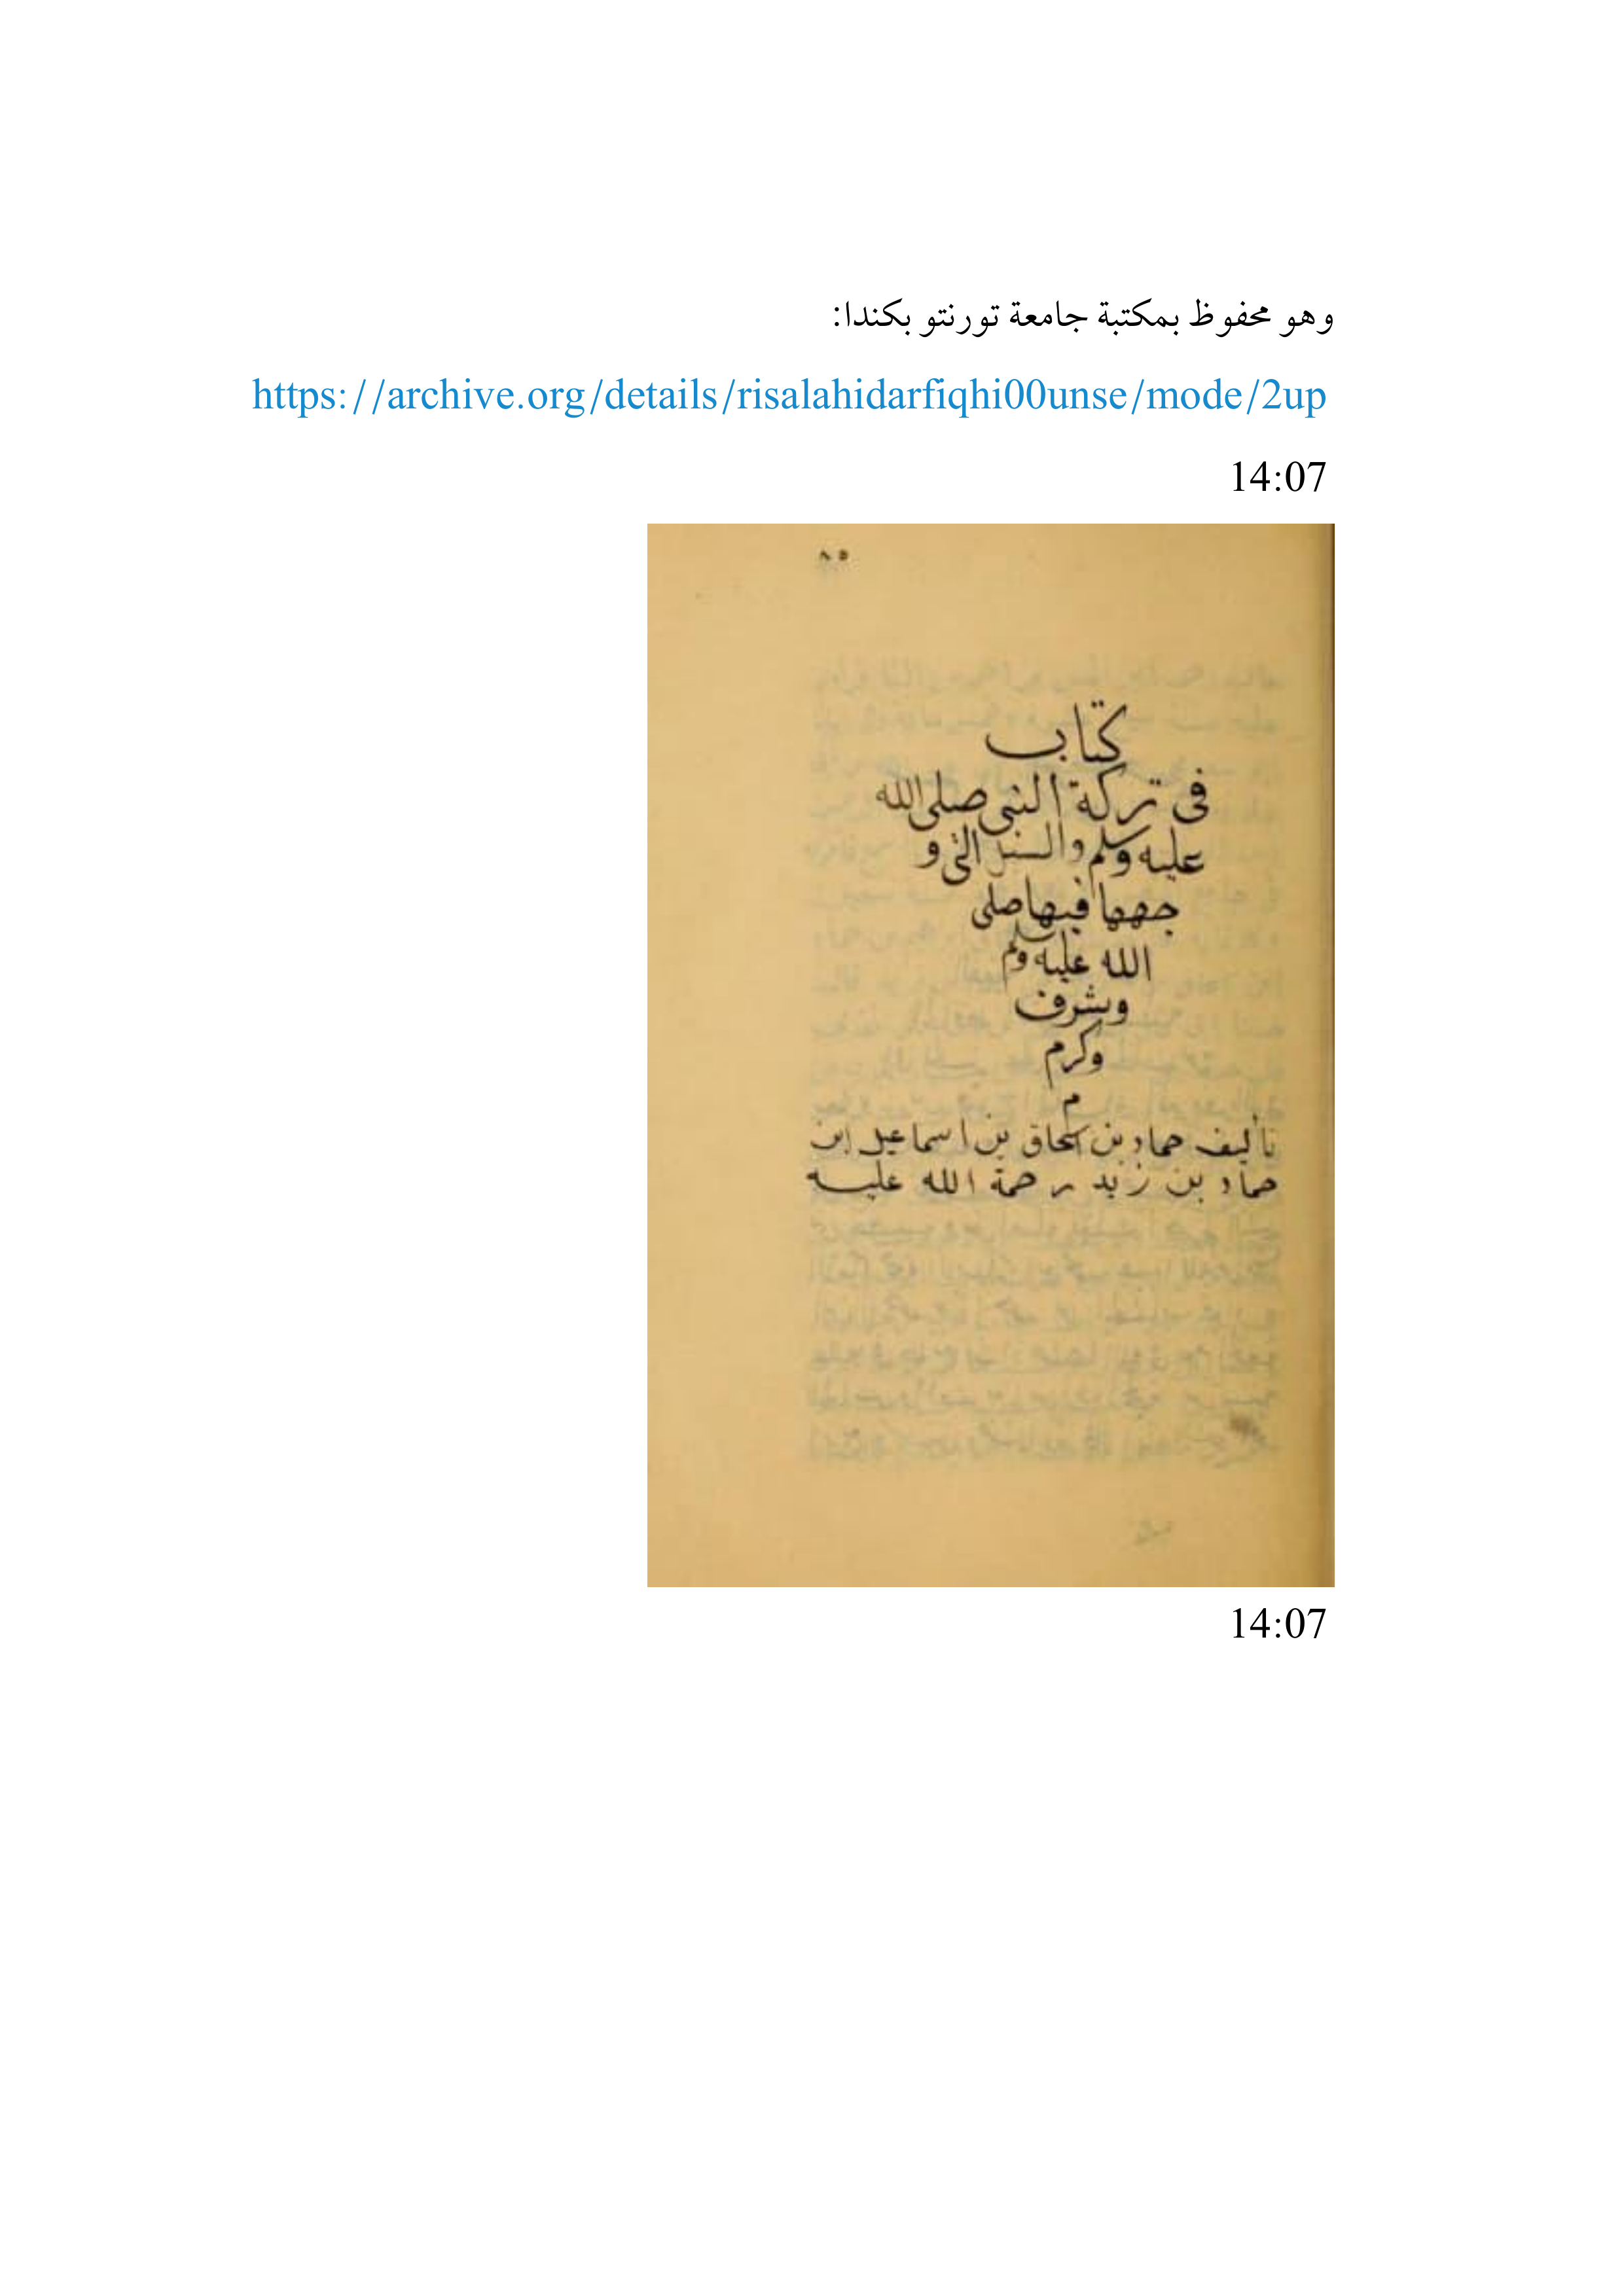 وهو محفوظ بمكتبة جامعة تورنتو بكندا:
https://archive.org/details/risalahidarfiqhi00unse/mode/2up
14:07
٨٥
كتاب
فى تركة النبى صلى الله
عليه وسلم والسبل التى و
جهها فيها صلى
الله عليه وسلم
وشرف
وكرم
م
تأليف حماد بن اسحاق بن اسماعيل ابن
حماد بن زيد رحمة الله عليه
14:07